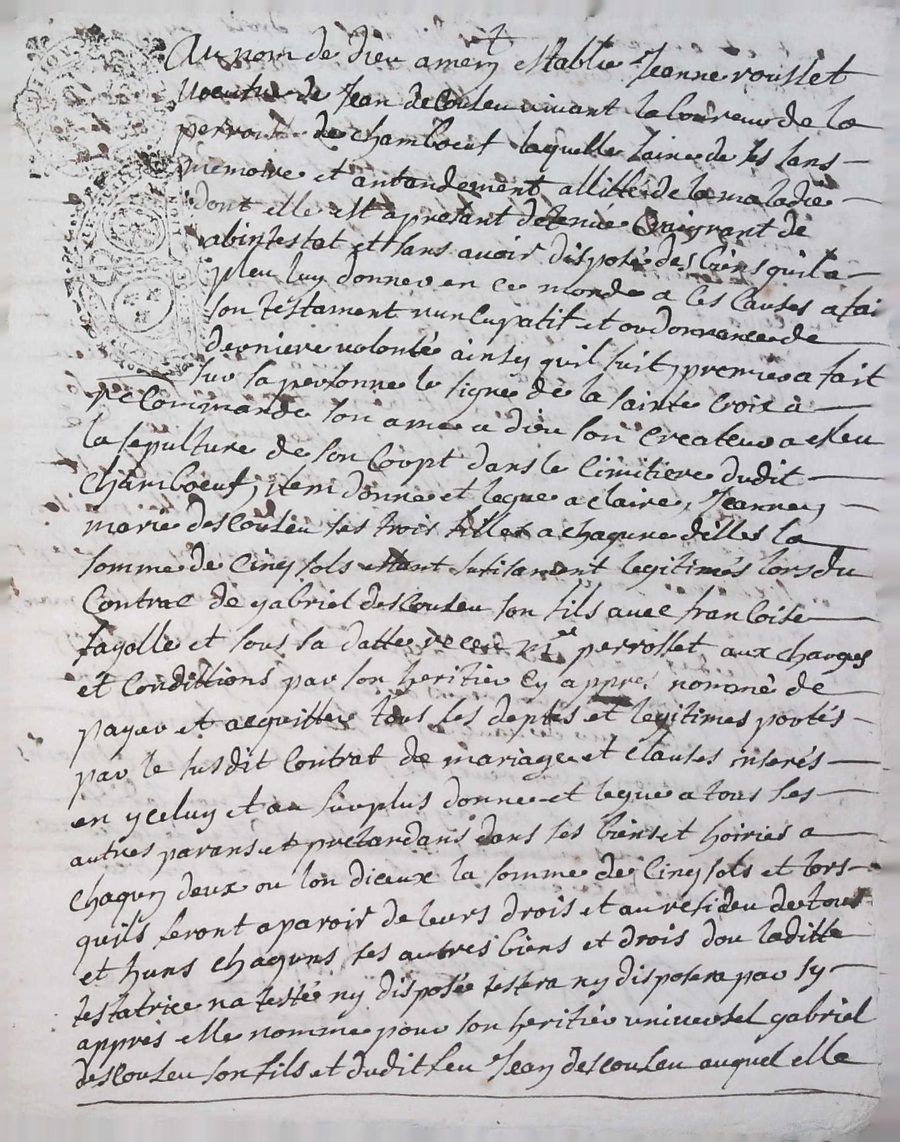 Au nom de dieu amen establie Jeanne rousset
veufve de Jean decouleu vivant laboureur de la
perroisse de chambœuf laquelle saine de ses sans
memoire et antandement allittée de la maladie
dont elle est apresant detenue craignant de
abintestat et sans avoir disposé des biens quil a
pleu luy donner en ce monde a ces causes a fai
son testament nuncupatif et ordonnance de
derniere volonté ainsy quil suit, premier a fait
sur sa personne le signe de la sainte croix a
recommande son ame a dieu son createur a esleu
la sepulture de son Coopt dans le cimitiere dudit
chambœuf, item donne et legue a claire, Jeanne,
marie descouleu ses trois filles a chaqune delles la
somme de cinq sols estant sufisament legitimés lors du
Contrac de gabriel descouleu son fils avec francoise
fayolle et sous sa datte receu Me perrosset aux charges
et Condittions par son heritier cy appres nommé de
payer et acquitter tous ses deptes et legitimes portés
par le susdit Contrat de mariage et Clauses inserés
en yceluy et au surplus donne et legue a tous ses
autres parans et pretandans dans ses biens et hoiries a
chaqun deux ou lon dieaux la somme de Cinq sols et lors
quils feront aparoir de leurs drois et au resideu de tous
et huns chaquns ses autres biens et drois dou laditte
testatrice na testé ny disposée testera ny disposera par sy
appres elle nomme pour son heritier universel gabriel
descouleu son fils et dudit feu Jean descouleu auquel elle